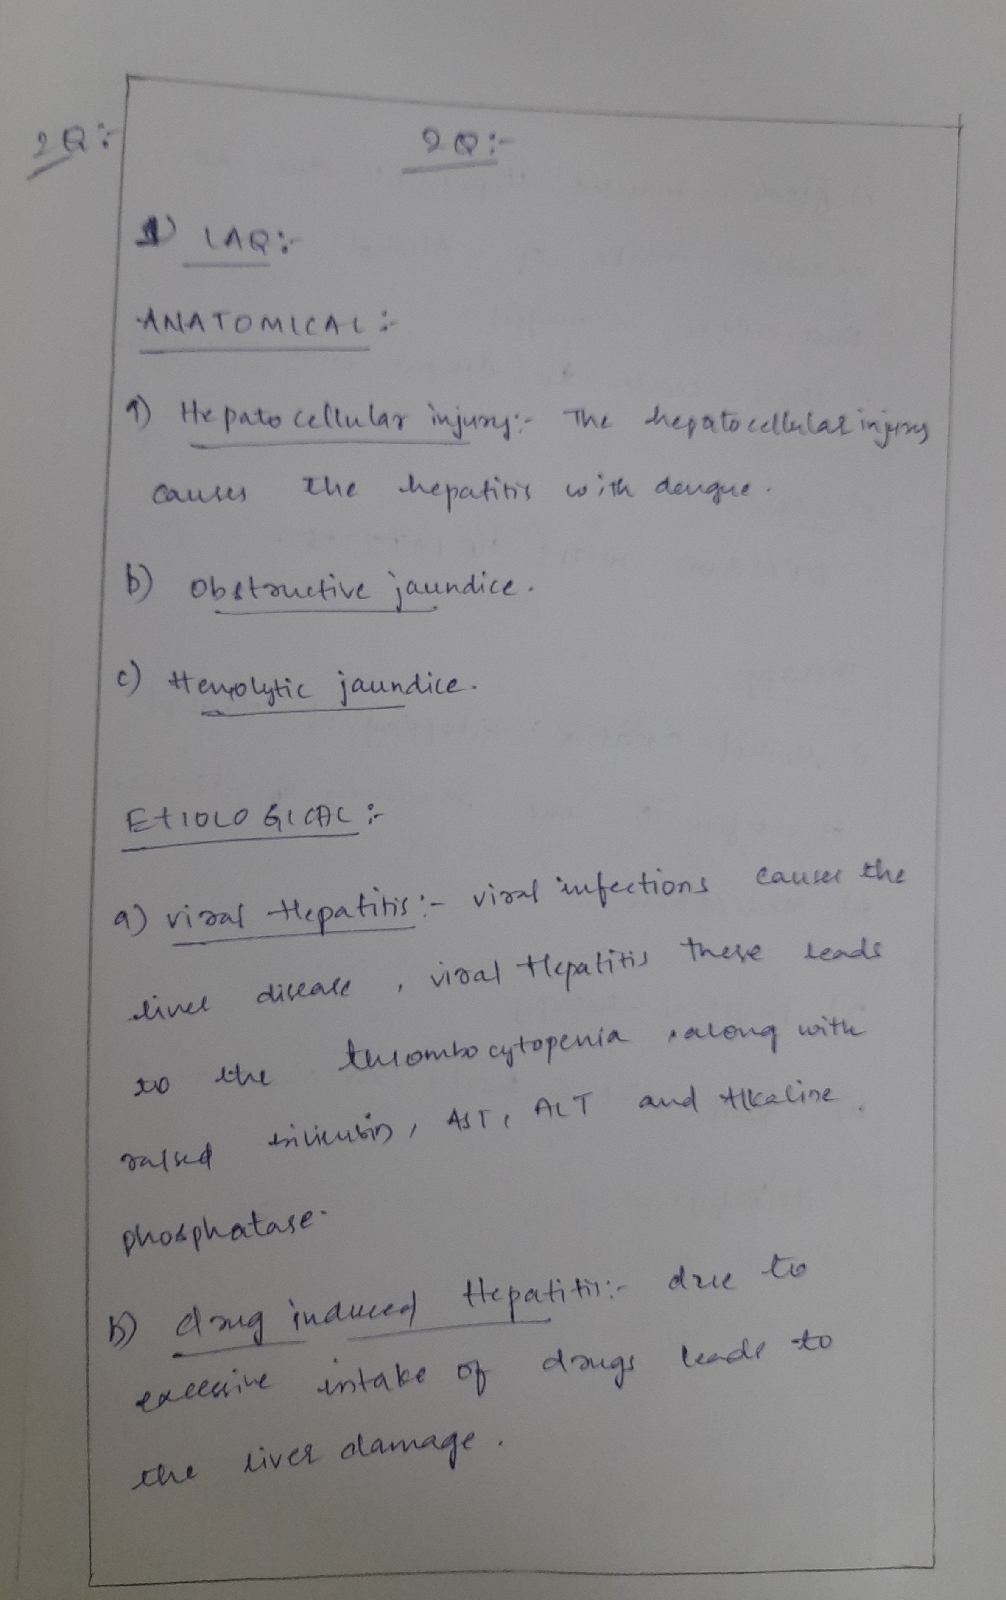 2Q:-
2Q:-
1) LAQ:-
ANATOMICAL:-
a) Hepato cellular injury:- The hepatocellular injury
causes the hepatitis with dengue.
b) obstructive jaundice.
c) Hemolytic jaundice.
EtIOLOGICAL:-
a) viral Hepatitis:- viral infections causes the
liver disease, viral Hepatitis these leads
to the thrombocytopenia, along with
raised bilirubin, AST, ALT and Alkaline
phosphatase.
b) drug induced Hepatitis:- due to
excessive intake of drugs leads to
the liver damage.